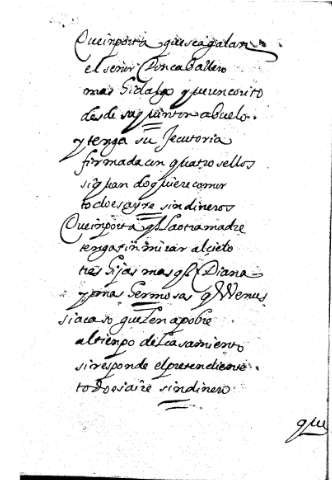 Que inporta que sea galan
el señor Don caballero
mas hidalgo que un corito
desde su quinto abuelo.
y tenga su Jecutoria
firmada cun quatro sellos
si quando quiere comer
todo es ayre sin dineros
Que inporta q la otra madre
tenga sin mirar al cielo
tres hijas mas q Diana
y mas hermosas q Wenus
si acaso güelen a pobre
al tienpo del casamiento
si responde el pretendiente.
todo es aire sin dinero
que